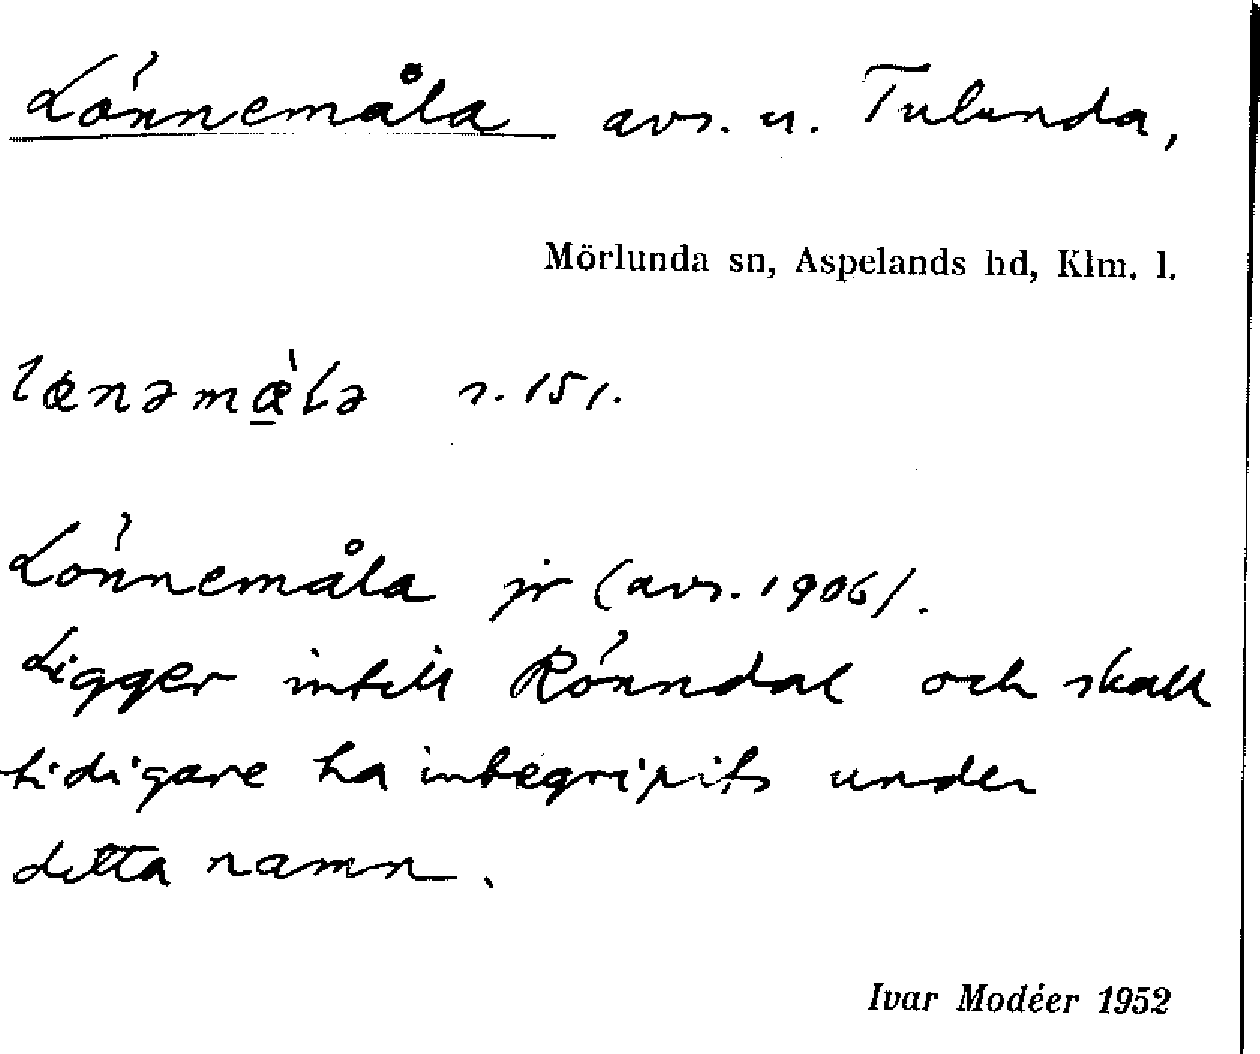 Lönnemåla avs. u. Tulunda,
Mörlunda sn, Aspelands hd, Klm. l.
lænəmæ̠̀lə s. 151.
Lönnemåla jr (avs. 1906).
Ligger intill Rönndal och skall
tidigare ha inbegripits under
detta namn.
Ivar Modéer 1952